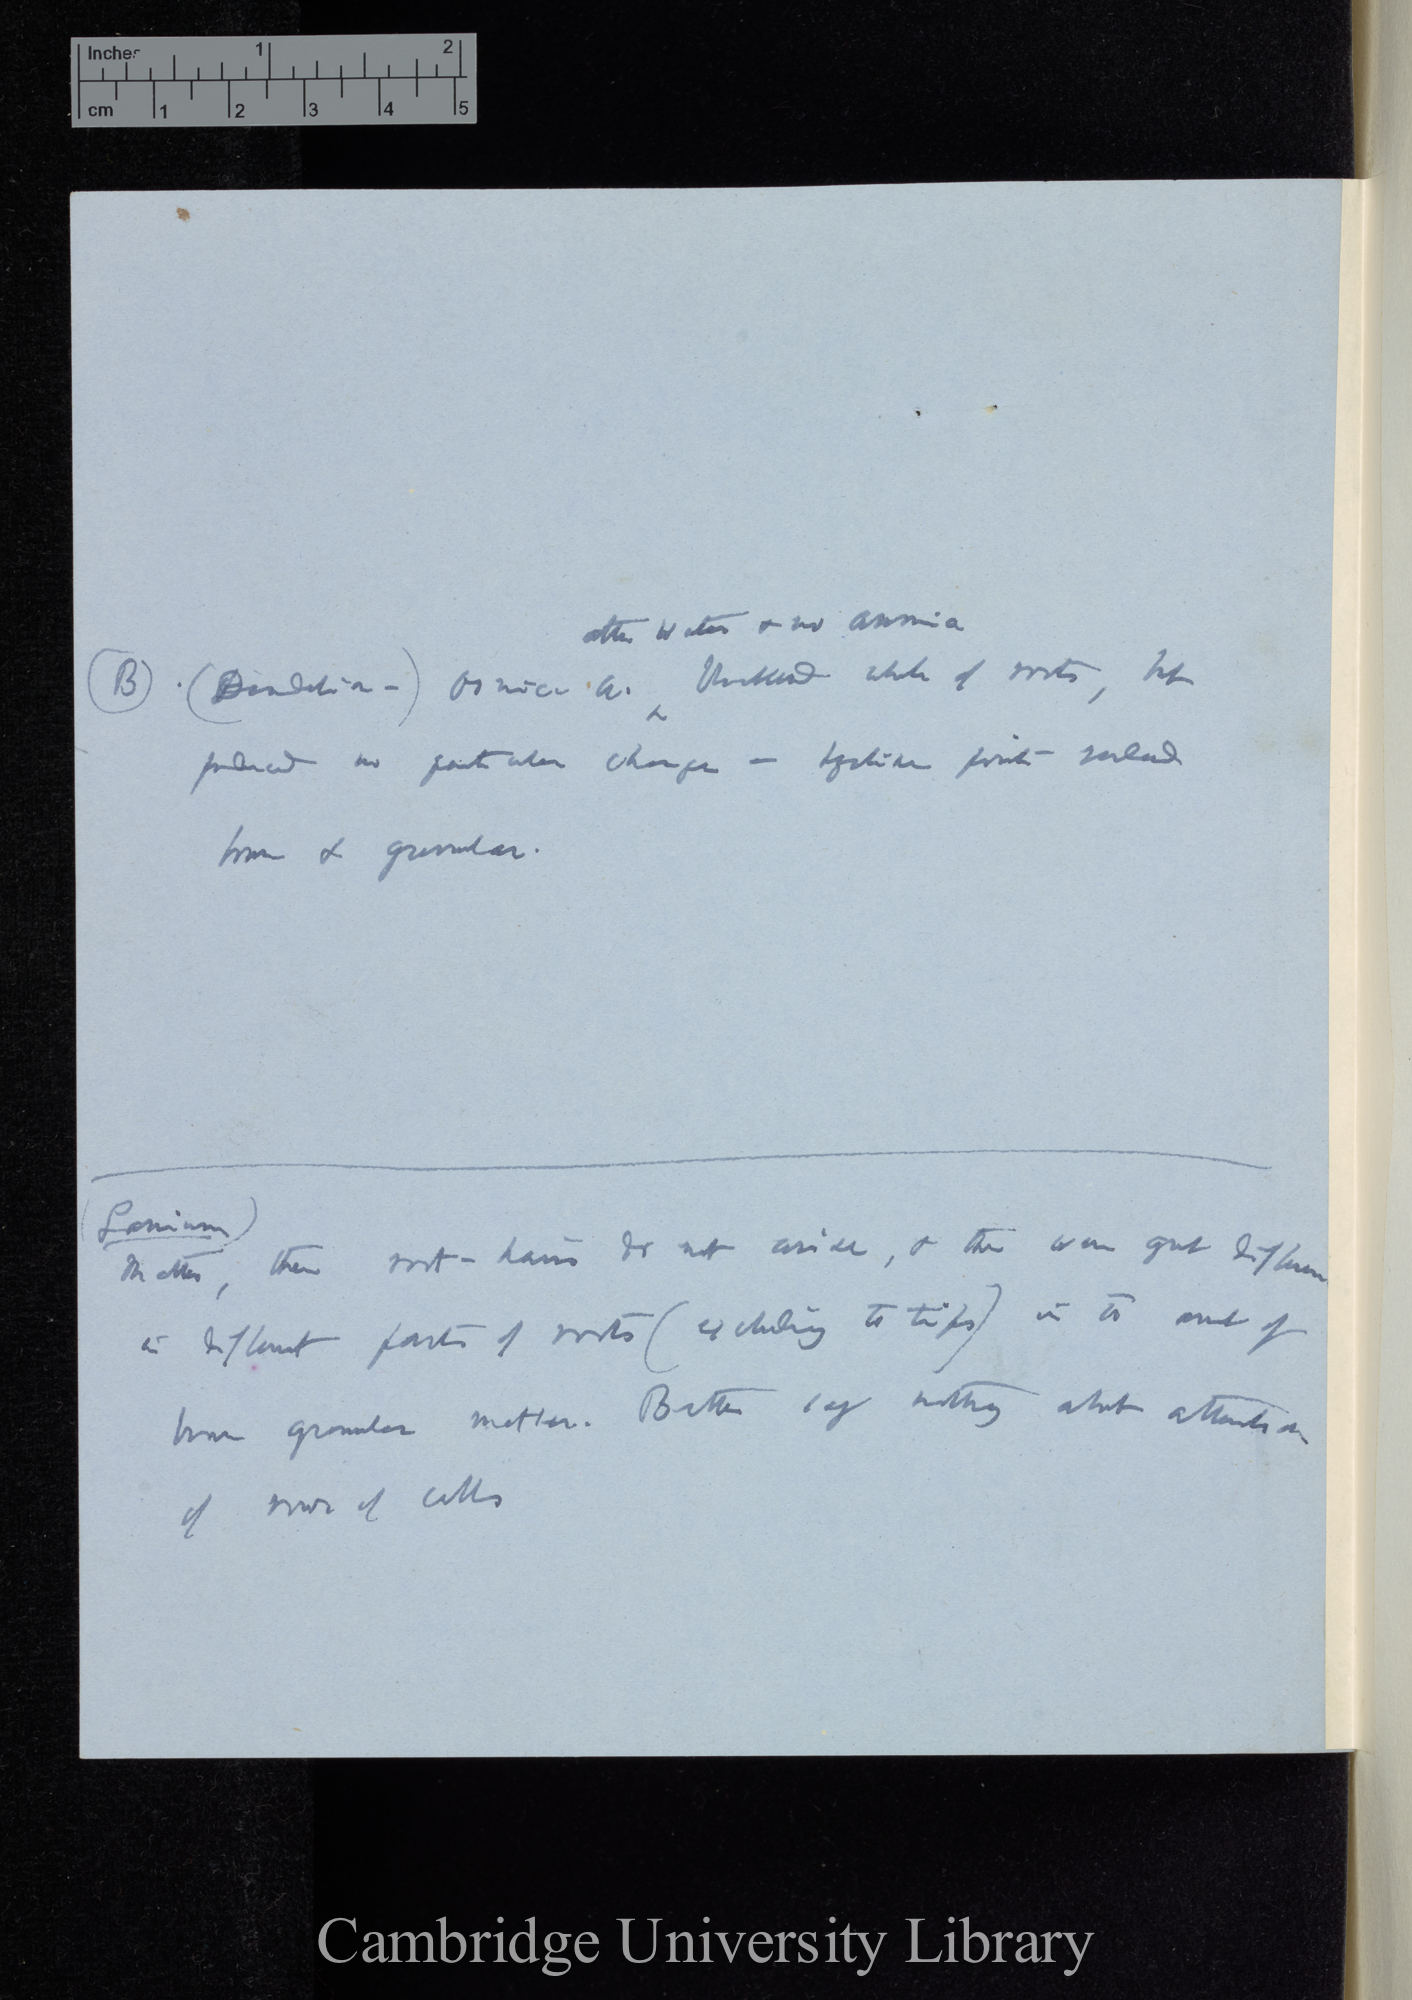 Inches 1 2
cm 1 2 3 4 5
after water & no ammonia
(B) . (Dandelion -) Osmic a. ^ blackened whole of roots, but
produced no particular change — points
brown & granular.
(Lamium)
matter, then root-hairs do not arise, & there was great difference
in different parts of roots (excluding the tips) in the amount of
brown granular matter. Better say nothing about alternation
of rows of cells
Cambridge University Library